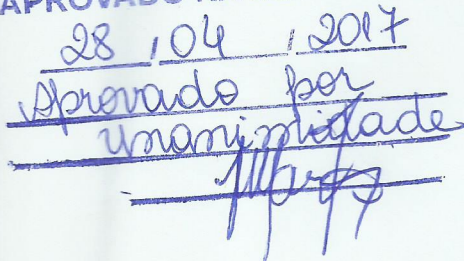 APROVADO
28 / 04 / 2017
Aprovado por
unanimidade